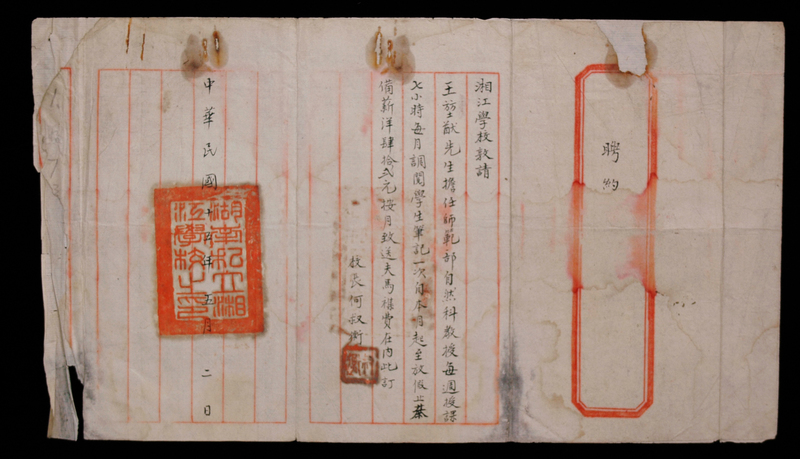 聘約
湘江學校敦請
王訪猷先生擔任師範部自然科教授每週授課
七小時每月調閱學生筆記一次自本月起至放假止恭
備薪洋肆拾弍元按月致送夫馬橙費在內此訂
校長何叔衡
中華民國十四年五月二日
湖南私立湘江學校之印